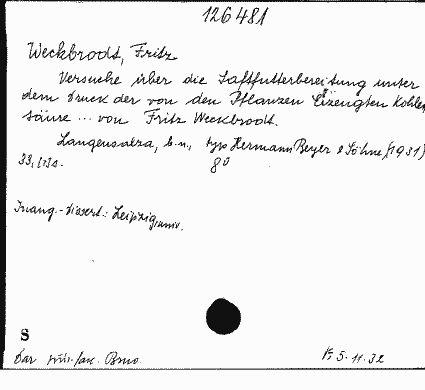 126481
Weckbrodt, Fritz
Versuche über die Saftfutterbereitung unter
dem Druck der von den Pflanzen Erzeugten Kohlen
säure ... von Fritz Weckbrodt.
Langensalza, b.n., typ Hermann Beyer & Söhne (1931)
33, 8°
Inaug.-dissert.: Leipzig, univ.
S
Dar Brno.
5.11.32